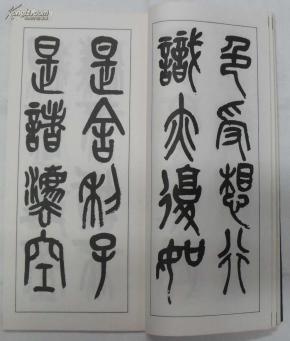 色受想行
識亦復如
是舍利子
是諸灋空